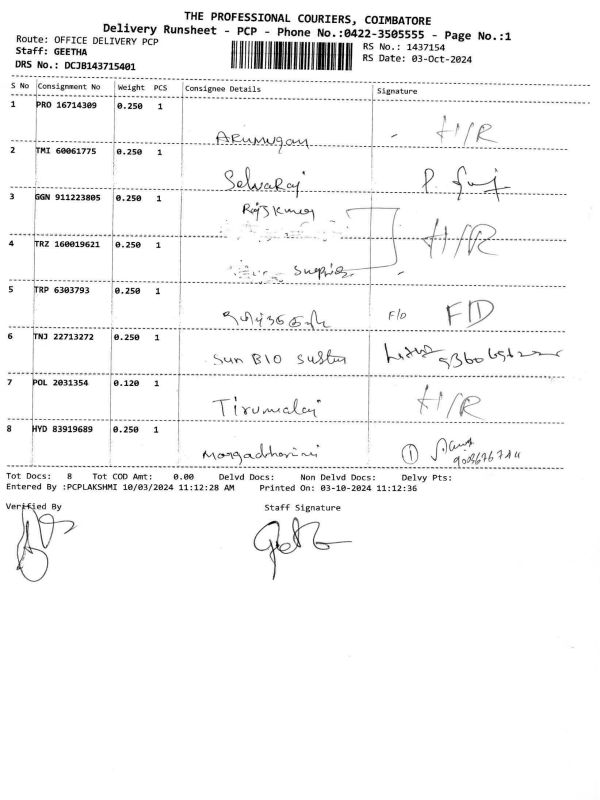 THE PROFESSIONAL COURIERS, COIMBATORE
Delivery Runsheet - PCP - Phone No.:0422-3505555 - Page No.:1
Route: OFFICE DELIVERY PCP
Staff: GEETHA
DRS No.: DCJB143715401
RS No.: 1437154
RS Date: 03-Oct-2024
S No Consignment No Weight PCS Consignee Details Signature
1 PRO 16714309 0.250 1
Arumugam H/R
2 TMI 60061775 0.250 1
Selvaraj P.
3 GGN 911223805 0.250 1
Rajskumar
H/R
4 TRZ 160019621 0.250 1
5 TRP 6303793 0.250 1
F/D F/D
6 TNJ 22713272 0.250 1
Sun BIO
7 POL 2031354 0.120 1
Tirumalai H/R
8 HYD 83919689 0.250 1
1
Tot Docs: 8 Tot COD Amt: 0.00 Delvd Docs: Non Delvd Docs: Delvy Pts:
Entered By :PCPLAKSHMI 10/03/2024 11:12:28 AM Printed On: 03-10-2024 11:12:36
Verified By Staff Signature